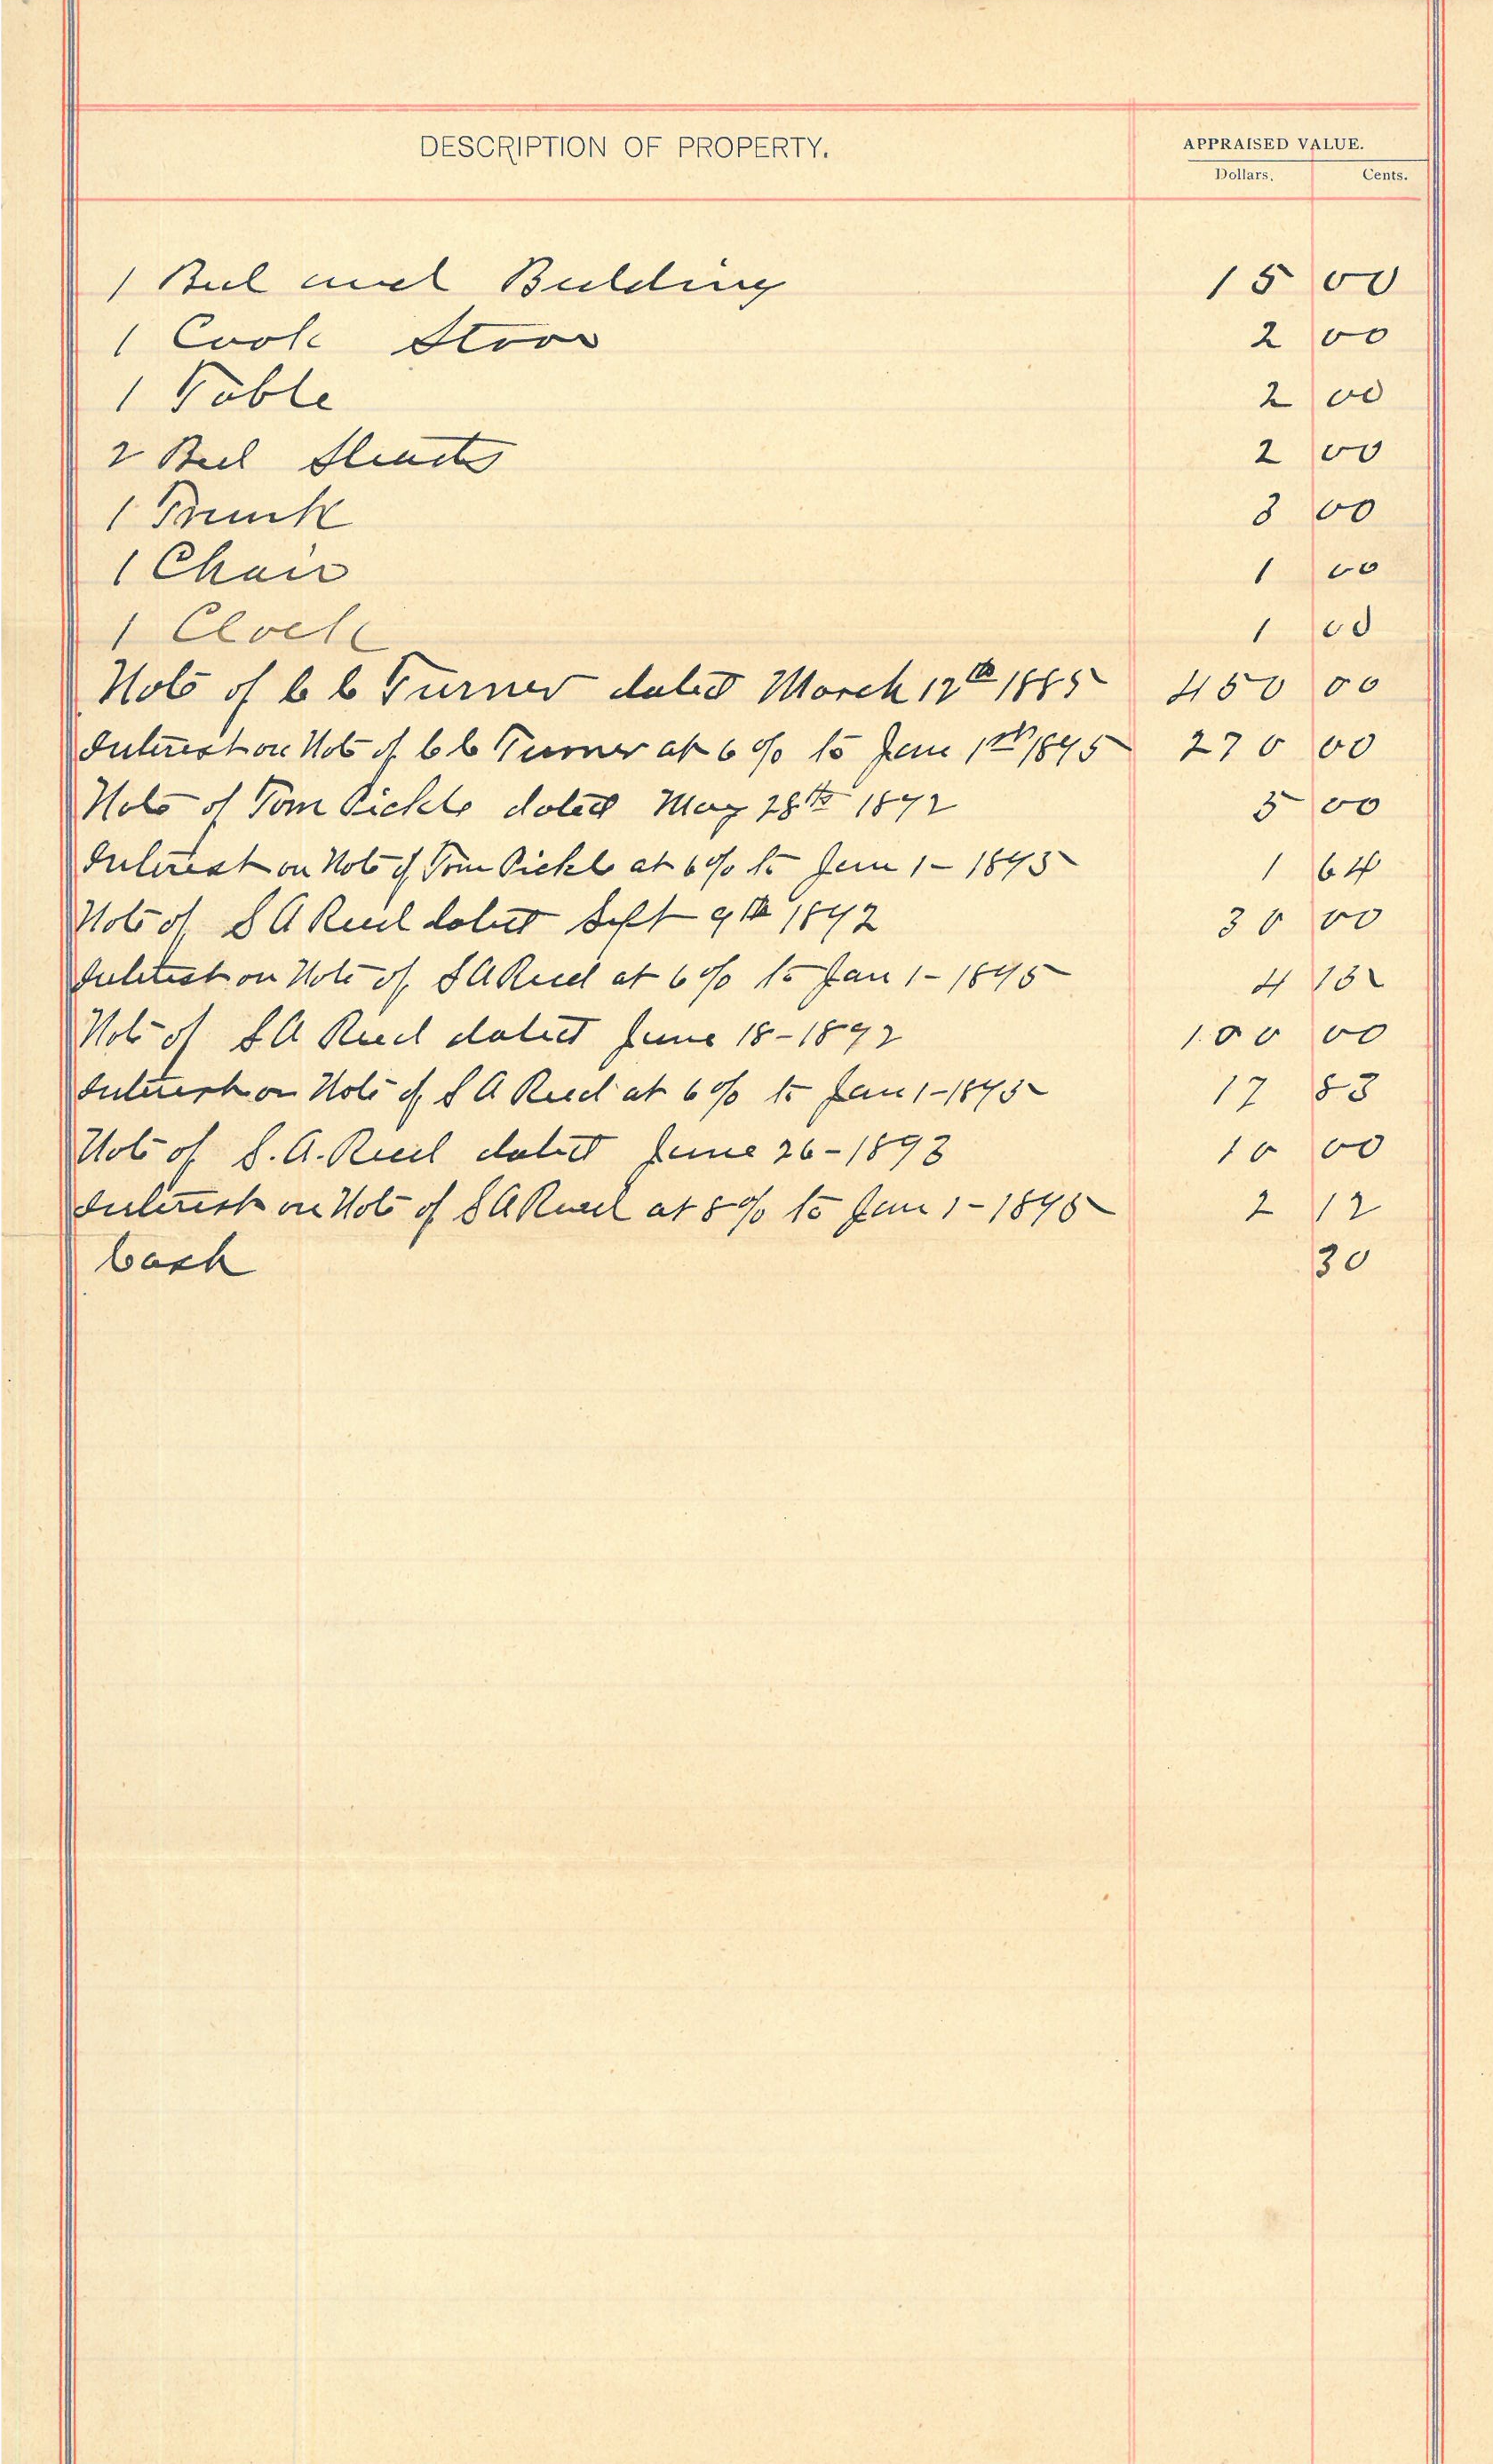 DESCRIPTION OF PROPERTY.
APPRAISED VALUE.
Dollars. Cents.
1 Bed and Bedding 15 00
1 Cook Stove 2 00
1 Table 2 00
2 Bed Steads 2 00
1 Trunk 3 00
1 Chair 1 00
1 Clock 1 00
Note of C C Turner dated March 12th 1885 450 00
Interest on Note of C C Turner at 6% to Jan 1st 1895 270 00
Note of Tom Pickle dated May 28th 1892 5 00
Interest on Note of Tom Pickle at 6% to Jan 1 - 1895 1 64
Note of S A Reed dated Sept 9th 1892 30 00
Interest on Note of S A Reed at 6% to Jan 1 - 1895 4 15
Note of S A Reed dated June 18 - 1892 100 00
Interest on Note of S A Reed at 6% to Jan 1 - 1895 17 83
Note of S. A. Reed dated June 26 - 1893 10 00
Interest on Note of S A Reed at 8% to Jan 1 - 1895 2 12
Cash 30